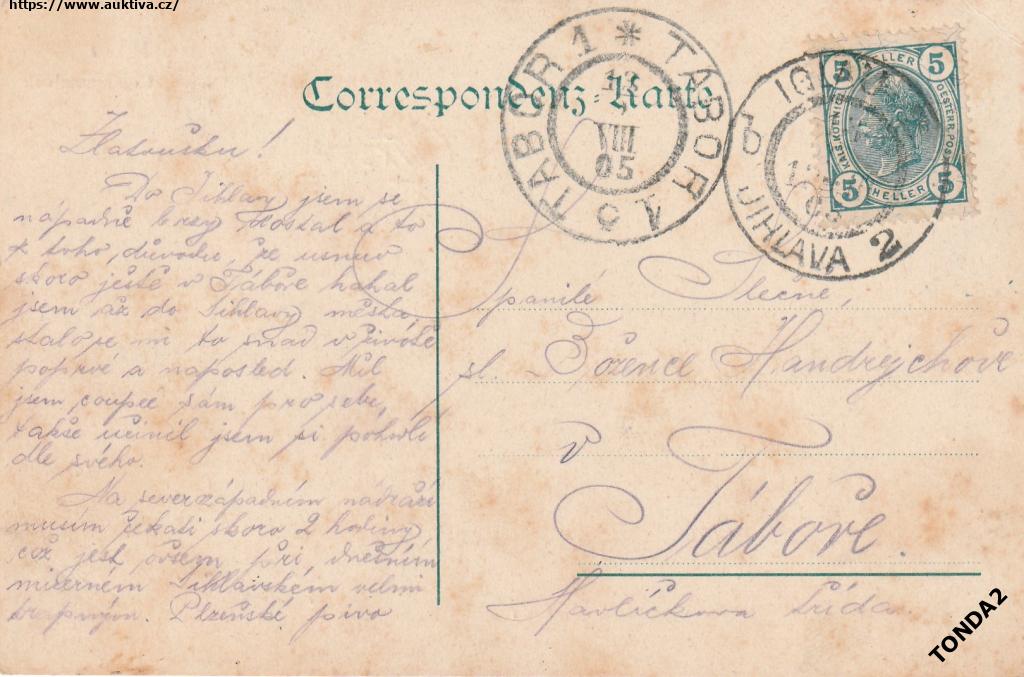 https://www.auktiva.cz/
Correspondenz-Karte
TABOR 1 * TABOR 1
13
VIII
05
JIHLAVA 2
5 HELLER 5
5 HELLER 5
Zlatoušku!
Do Jihlavy jsem se
nápadně brzy dostal a to
z toho důvodu, že usnuv
skoro ještě v Táboře
jsem až do Jihlavy města,
stalo se mi to snad v životě
poprvé a naposled. Měl
jsem coupée sám pro sebe,
takže učinil jsem si pohodlí
dle svého.
Na severozápadním nádraží
musím čekati skoro 2 hodiny
což jest ovšem při dnešním
mizerném Jihlavském velmi
trapným. Plzeňské pivo
Spanilé Slečně,
sl. Božence Handrejchové
v
Táboře.
Havlíčkova třída.
TONDA2